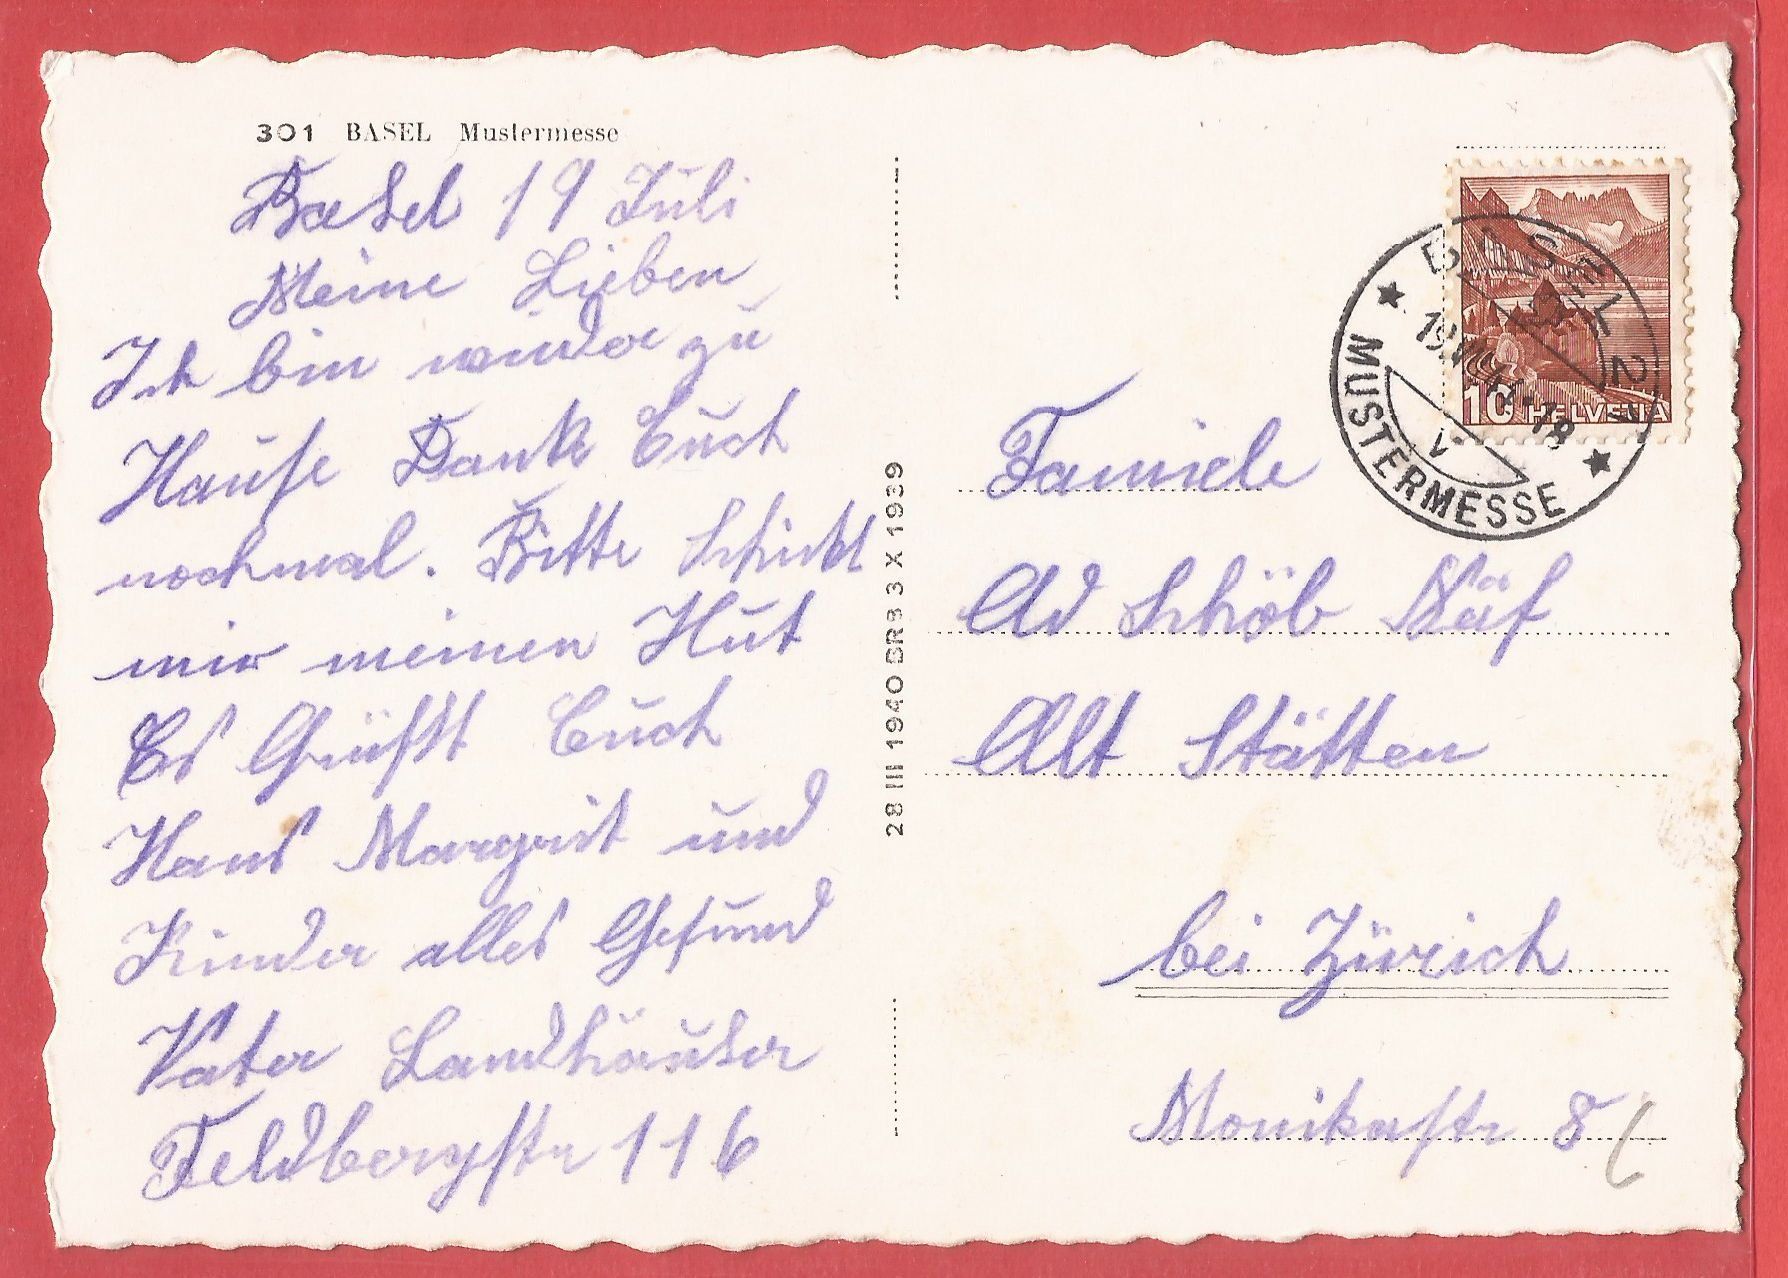 301 BASEL Mustermesse
Basel 19 Juli
Meine Lieben
Ich bin wieder zu
Hause Dank Euch
nochmal. Bitte schickt
mir meinen Hut
Es Grüßt Euch
Hans Margrit und
Kinder alles Gesund
Vater Landhäuser
Feldbergstr 116
28 III 1940 BRB 3 X 1939
BASEL 2
19.VII. -18
V
MUSTERMESSE
10 HELVETIA
Familele
Ad Schöb Näf
Alt Stätten
bei Zürich
Monikastr 8